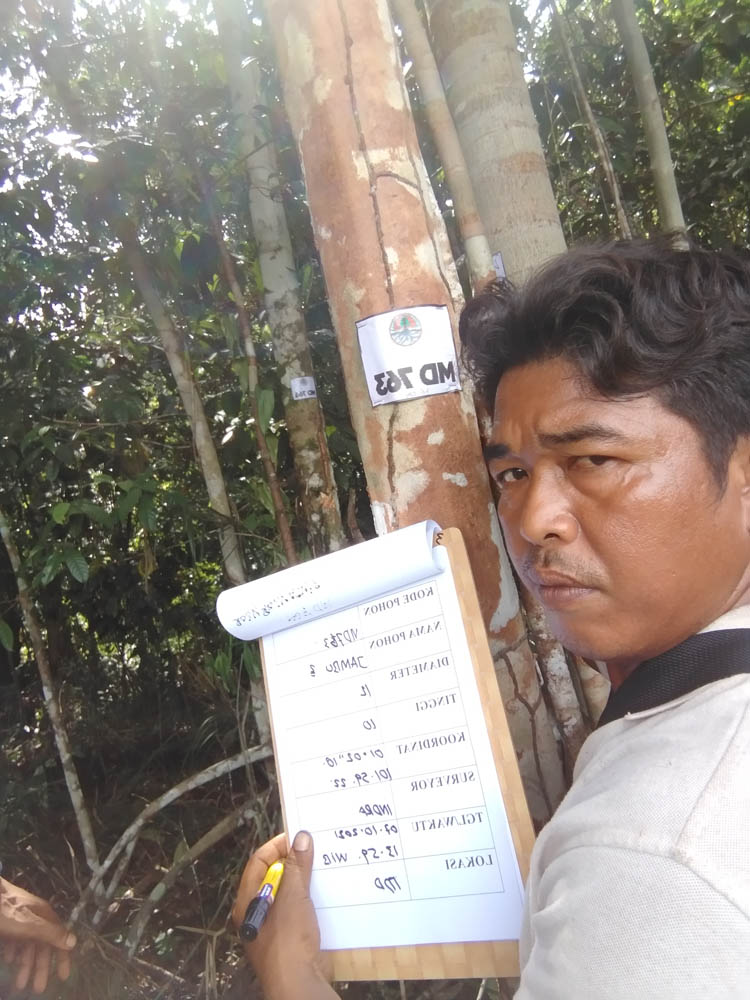 MD 763
KODE POHON MD763
NAMA POHON JAMBU 2
DIAMETER 12
TINGGI 10
KOORDINAT 01.02"10.
101.59.22.
SURVEYOR INDRA
TGL/WAKTU 07.10.2021
13.59. WIB
LOKASI TDD